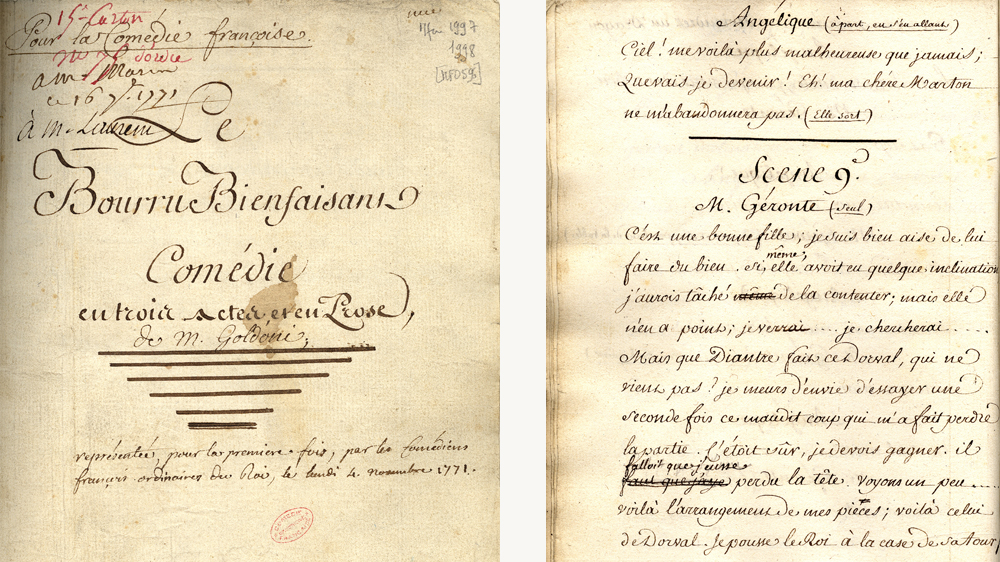 15e Carton
Pour la Comédie françoise.
a mr. Marin
ce 16 7bre. 1771
à M. Laurent
Le
Bourru Bienfaisant
Comédie
en trois Actes, et en Prose,
de M. Goldoni,
représentée, pour la première fois, par les Comédiens
françois ordinaires du Roi, le lundi 4. novembre 1771.
1997
1998
Angélique (à part, en s'en allant)
Ciel! me voilà plus malheureuse que jamais;
Que vais-je devenir! Eh! ma chére Marton
ne m'abandonnera pas. (Elle sort)
Scene 9e.
M. Géronte (seul)
C'est une bonne fille; je suis bien aise de lui
faire du bien. Si même, elle avoit eu quelque inclination
j'aurois tâché même de la contenter; mais elle
n'en a point; je verrai .... je chercherai .....
Mais que Diantre fait ce Dorval, qui ne
vient pas? je meurs d'envie d'essayer une
seconde fois ce maudit coup qui m'a fait perdre
la partie. C'étoit sûr, je devois gagner. il
falloit que j'eusse
faut que j'aye perdu la tête. Voyons un peu ....
voilà l'arrangement de mes pièces; voilà celui
de Dorval. Je pousse le Roi à la case de sa Tour,